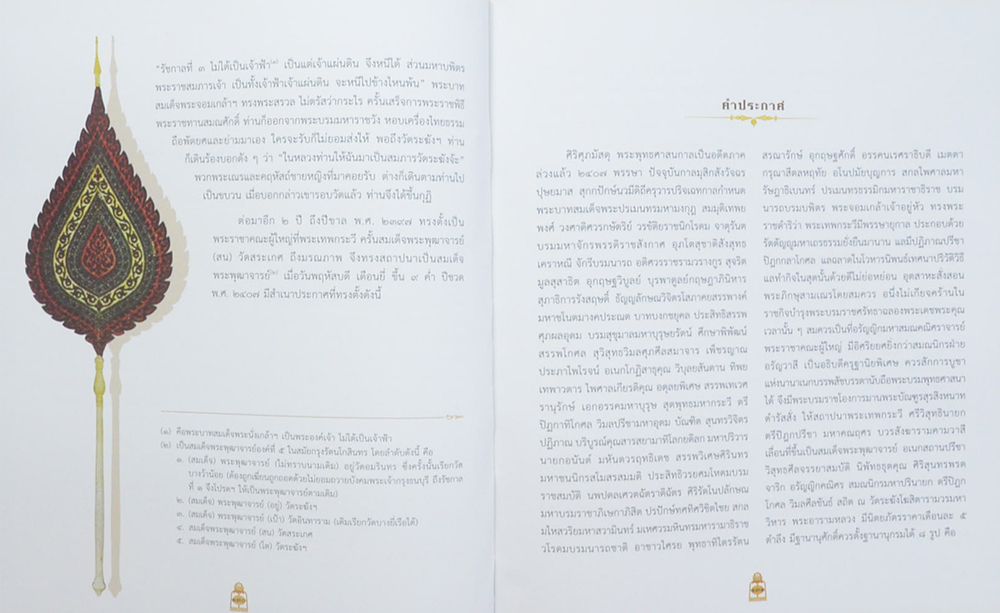 “รัชกาลที่ ๓ ไม่ได้เป็นเจ้าฟ้า(๑) เป็นแต่เจ้าแผ่นดิน จึงหนีได้ ส่วนมหาบพิตร
พระราชสมภารเจ้า เป็นทั้งเจ้าฟ้าเจ้าแผ่นดิน จะหนีไปข้างไหนพ้น” พระบาท
สมเด็จพระจอมเกล้าฯ ทรงพระสรวล ไม่ตรัสว่ากระไร ครั้นเสร็จการพระราชพิธี
พระราชทานสมณศักดิ์ ท่านก็ออกจากพระบรมมหาราชวัง หอบเครื่องไทยธรรม
ถือพัดยศและย่ามมาเอง ใครจะรับก็ไม่ยอมส่งให้ พอถึงวัดระฆังฯ ท่าน
ก็เดินร้องบอกดัง ๆ ว่า “ในหลวงท่านให้ฉันมาเป็นสมภารวัดระฆังจ้ะ”
พวกพระเณรและคฤหัสถ์ชายหญิงที่มาคอยรับ ต่างก็เดินตามท่านไป
เป็นขบวน เมื่อบอกกล่าวเขารอบวัดแล้ว ท่านจึงได้ขึ้นกุฏิ
ต่อมาอีก ๒ ปี ถึงปีขาล พ.ศ. ๒๓๙๗ ทรงตั้งเป็น
พระราชาคณะผู้ใหญ่ที่พระเทพกระวี ครั้นสมเด็จพระพุฒาจารย์
(สน) วัดสระเกศ ถึงมรณภาพ จึงทรงสถาปนาเป็นสมเด็จ
พระพุฒาจารย์(๒) เมื่อวันพฤหัสบดี เดือนยี่ ขึ้น ๙ ค่ำ ปีชวด
พ.ศ. ๒๔๐๗ มีสำเนาประกาศที่ทรงตั้งดังนี้
(๑) คือพระบาทสมเด็จพระนั่งเกล้าฯ เป็นพระองค์เจ้า ไม่ได้เป็นเจ้าฟ้า
(๒) เป็นสมเด็จพระพุฒาจารย์องค์ที่ ๕ ในสมัยกรุงรัตนโกสินทร์ โดยลำดับดังนี้ คือ
๑. (สมเด็จ) พระพุฒาจารย์ (ไม่ทราบนามเดิม) อยู่วัดอมรินทร ซึ่งครั้งนั้นเรียกวัด
บางว้าน้อย (ต้องถูกเฆี่ยนถูกถอดด้วยไม่ยอมถวายบังคมพระเจ้ากรุงธนบุรี ถึงรัชกาล
ที่ ๑ จึงโปรดฯ ให้เป็นพระพุฒาจารย์ตามเดิม)
๒. (สมเด็จ) พระพุฒาจารย์ (อยู่) วัดระฆังฯ
๓. (สมเด็จ) พระพุฒาจารย์ (เป้า) วัดอินทาราม (เดิมเรียกวัดบางยี่เรือใต้)
๔. สมเด็จพระพุฒาจารย์ (สน) วัดสระเกศ
๕. สมเด็จพระพุฒาจารย์ (โต) วัดระฆังฯ
คำประกาศ
ศิริศุภมัสตุ พระพุทธศาสนกาลเป็นอดีตภาค
ล่วงแล้ว ๒๔๐๗ พรรษา ปัจจุบันกาลมุสิกสังวัจฉร
ปุษยมาส สุกกปักษ์นวมีดิถีครุวารปริจเฉทกาลกำหนด
พระบาทสมเด็จพระปรเมนทรมหามงกุฎ สมมุติเทพย
พงศ์ วงศาดิศวรกษัตริย์ วรขัติยราชนิกโรดม จาตุรันต
บรมมหาจักรพรรดิราชสังกาศ อุภโตสุชาติสังสุทธ
เคราหณี จักรีบรมนารถ อดิศวรราชรามวรางกูร สุจริต
มูลสุสาธิต อุกฤษฐวิบูลย์ บุรพาดูลย์กฤษฎาภินิหาร
สุภาธิการรังสฤษดิ์ ธัญญลักษณวิจิตรโสภาคยสรรพางค์
มหาชโนตมางคประณต บาทบงกชยุคล ประสิทธิสรรพ
ศุภผลอุดม บรมสุขุมาลมหาบุรุษยรัตน์ ศึกษาพิพัฒน์
สรรพโกศล สุวิสุทธวิมลศุภศีลสมาจาร เพ็ชรญาณ
ประภาไพโรจน์ อเนกโกฏิสาธุคุณ วิบุลยสันดาน ทิพย
เทพาวตาร ไพศาลเกียรติคุณ อดุลยพิเศษ สรรพเทเวศ
รานุรักษ์ เอกอรรคมหาบุรุษ สุตพุทธมหากระวี ตรี
ปิฎกาทิโกศล วิมลปรีชามหาอุดม บัณฑิต สุนทรวิจิตร
ปฏิภาณ บริบูรณ์คุณสารสยามาทิโลกยดิลก มหาปริวาร
นายกอนันต์ มหันตวรฤทธิเดช สรรพวิเศษศิรินทร
มหาชนนิกรสโมสรสมมติ ประสิทธิวรยศมโหดมบรม
ราชสมบัติ นพปดลเศวตฉัตราดิฉัตร ศิริรัตโนปลักษณ
มหาบรมราชาภิเษกาภิสิต สรรพทศทิศวิชิตไชย สกล
มไหสวริยมหาสวามินทร์ มเหศวรมหินทรมหารามาธิราช
วโรดมบรมนารถชาติ อาชาวไศรย พุทธาทิไตรรัตน
สรณารักษ์ อุกฤษฐศักดิ์ อรรคนเรศราธิบดี เมตตา
กรุณาสีตลหฤทัย อโนปมัยบุญการ สกลไพศาลมหา
รัษฎาธิเบนทร์ ปรเมนทรธรรมิกมหาราชาธิราช บรม
นารถบรมบพิตร พระจอมเกล้าเจ้าอยู่หัว ทรงพระ
ราชดำริว่า พระเทพกระวีมีพรรษายุกาล ประกอบด้วย
รัตตัญญูมหาเถรธรรมยั่งยืนมานาน แลมีปฏิภาณปรีชา
ปิฎกกลาโกศล แลฉลาดในโวหารนิพนธ์เทศนาปริวัติวิธี
แลทำกิจในสุตนั้นด้วยดีไม่ย่อหย่อน อุตสาหะสั่งสอน
พระภิกษุสามเณรโดยสมควร อนึ่งไม่เกียจคร้านใน
ราชกิจบำรุงพระบรมราชศรัทธาฉลองพระเดชพระคุณ
เวลานั้น ๆ สมควรเป็นที่อรัญญิกมหาสมณคณิศราจารย์
พระราชาคณะผู้ใหญ่ มีอิศริยยศยิ่งกว่าสมณนิกรฝ่าย
อรัญวาสี เป็นอธิบดีครุฐานิยพิเศษ ควรสักการบูชา
แห่งนานาเนกบรรพสัชบรรดานับถือพระบรมพุทธศาสนา
ได้ จึงมีพระบรมราชโองการมานพระบัณฑูรสุรสิงหนาท
ดำรัสสั่ง ให้สถาปนาพระเทพกระวี ศรีวิสุทธินายก
ตรีปิฎกปรีชา มหาคณฤศร บวรสังฆารามคามวาสี
เลื่อนที่ขึ้นเป็นสมเด็จพระพุฒาจารย์ อเนกสถานปรีชา
วิสุทธศีลจรรยาสมบัติ นิพัทธธุตคุณ ศิริสุนทรพรต
จาริก อรัญญิกคณิศร สมณนิกรมหาปรินายก ตรีปิฎก
โกศล วิมลศีลขันธ์ สถิต ณ วัดระฆังโฆสิตารามวรมหา
วิหาร พระอารามหลวง มีนิตยภัตรราคาเดือนละ ๕
ตำลึง มีฐานานุศักดิ์ควรตั้งฐานานุกรมได้ ๘ รูป คือ